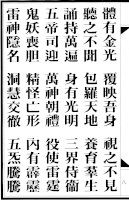 體有金光 覆映吾身 視之不見
聽之不聞 包羅天地 養育羣生
誦持萬遍 身有光明 三界侍衛
五帝司迎 萬神朝禮 役使雷霆
鬼妖喪膽 精怪亡形 內有霹靂
雷神隱名 洞慧交徹 五炁騰騰